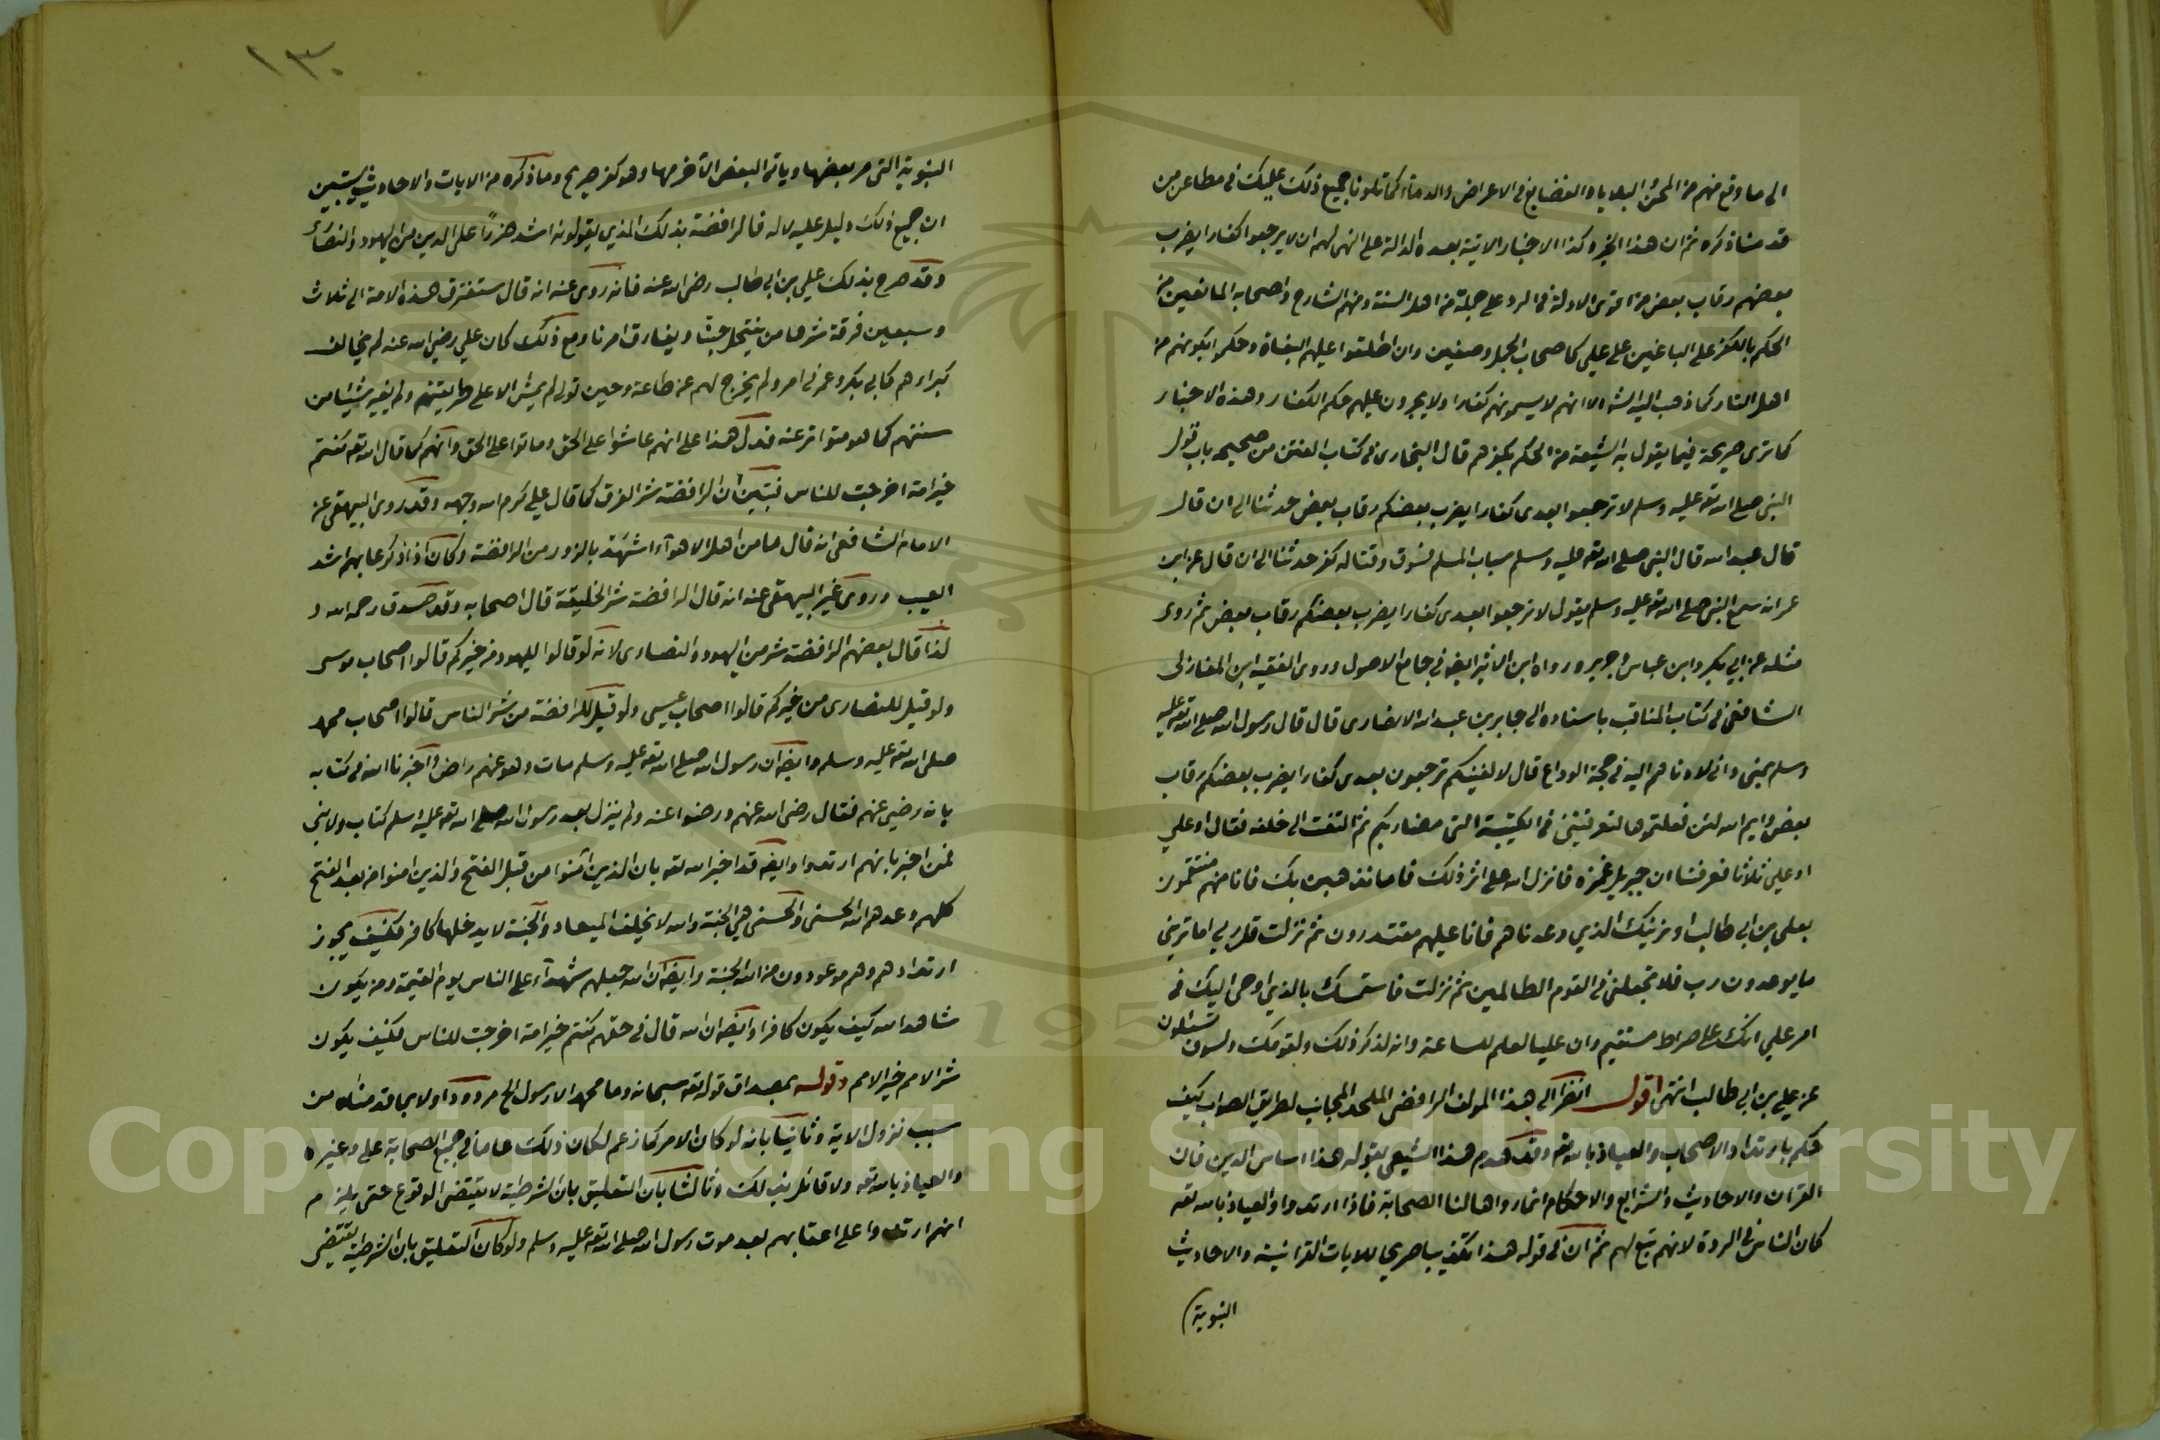 الى ما وقع منهم من المحن والبلايا والفضايع في الاعراض والدماء كما تلونا جميع ذلك عليك في مطاعن من
قد منا ذكره ثم ان هذا الخبر وكذا الاخبار الاتية بعده الدالة على النهى لهم ان لا يرجعوا كفارا يضرب
بعضهم رقاب بعض من اقوى الادلة في الرد على جملة من اهل السنة ومنهم الشارح واصحابه المانعين من
الحكم بالكفر على الباغين على علي كاصحاب الجمل وصفين وان اطلقوا عليهم البغاة وحكموا بكونهم من
اهل النار كما ذهب اليه الا انهم لا يسمونهم كفارا ولا يجرون عليهم حكم الكفار وهذه الاخبار
كما ترى صريحة فيما يقول به الشيعة من الحكم بكفرهم قال البخارى في كتاب الفتن من صحيحه باب قول
النبى صلى الله تعه عليه وسلم لا ترجعوا بعدى كفارا يضرب بعضكم رقاب بعض حدثنا الى ان قال
قال عبد الله قال النبى صلى الله تعه عليه وسلم سباب المسلم فسوق وقتاله كفر حدثنا الى ان قال عن ابن
عمر انه سمع النبى صلى الله تعه عليه وسلم يقول لا ترجعوا بعدى كفارا يضرب بعضكم رقاب بعض ثم روى
مثله عن ابي بكر وابن عباس وجرير ورواه ابن الاثير ايضه في جامع الاصول وروى الفقيه ابن المغازلى
الشافعى في كتاب المناقب باسناده الى جابر بن عبد الله الانصارى قال قال رسول الله صلى الله تعه عليه
وسلم بمنى وانى لادناهم اليه في حجة الوداع قال لا لفينكم ترجعون بعدى كفارا يضرب بعضكم رقاب
بعض وايم الله لئن فعلتموها لتعرفننى في الكتيبة التى تضاربكم ثم التفت الى خلفه فقال او على
او على ثلاثا فعرفنا ان جبريل غمزه فانزل الله على اثر ذلك فاما نذهبن بك فانا منهم منتقمون
بعلى بن ابي طالب او نرينك الذي وعدناهم فانا عليهم مقتدرون ثم نزلت قل رب اما ترينى
ما يوعدون رب فلا تجعلنى في القوم الظالمين ثم نزلت فاستمسك بالذي اوحى اليك في
امر علي انك على صراط مستقيم وان عليا لعلم للساعة وانه لذكر لك ولقومك ولسوف تسئلون
عن علي بن ابي طالب انتهى اقول انظر الى هذا المولف الرافضى الملحد المجانب لطريق الصواب كيف
حكم بارتداد الاصحاب والعياذ بالله تعه وقد هدم هذا الشيعى بقوله هذا اساس الدين فان
القران والاحاديث والشرايع والاحكام انما رواها لنا الصحابة فاذا ارتدوا والعياذ بالله تعه
كان الناس في الردة لانهم تبع لهم ثم ان في قوله هذا تكذيبا صريحا للايات القرانية والاحاديث
النبوية
١٣٠
النبوية التى مر بعضها وياتى البعض الآخر منها وهو كفر صريح وما ذكره من الايات والاحاديث يستبين
ان جميع ذلك دليل عليه لا له فالرافضة بذلك الذي يقولونه اشد ضررًا على الدين من اليهود والنصارى
وقد صرح بذلك علي بن ابي طالب رضى الله عنه فانه روى عنه انه قال ستفترق هذه الامة الى ثلاث
وسبعين فرقة شرها من ينتحل حبنا ويفارق امرنا ومع ذلك كان علي رضى الله عنه لم يخالف
كبراءهم كابي بكر وعمر في امر ولم يخرج لهم عن طاعة وحين تولى لم يمش الا على طريقتهم ولم يغير شيئا من
سنتهم كما هو متواتر عنه فدل هذا على انهم عاشوا على الحق وماتوا على الحق وانهم كما قال الله تعه كنتم
خير امة اخرجت للناس فتبين ان الرافضة شر الفرق كما قال علي كرم الله وجهه وقد روى البيهقى عن
الامام الشافعى انه قال ما من اهل الاهوآء اشهد بالزور من الرافضة وكان اذا ذكر عابهم اشد
العيب وروى غير البيهقى عنه انه قال الرافضة شر الخليقة قال اصحابه وقد صدق رحمه الله و
لذا قال بعضهم الرافضة شر من اليهود والنصارى لانه لو قالوا لليهود من خيركم قالوا اصحاب موسى
ولو قيل للنصارى من خيركم قالوا اصحاب عيسى ولو قيل للرافضة من شر الناس قالوا اصحاب محمد
صلى الله تعه عليه وسلم وايضه ان رسول الله صلى الله تعه عليه وسلم مات وهو عنهم راض واخبرنا الله في كتابه
بانه رضى عنهم فقال رضى الله عنهم ورضوا عنه ولم ينزل بعد رسول الله صلى الله تعه عليه وسلم كتاب ولا نبى
فمن اخبر بانهم ارتدوا وايضه قد اخبر الله تعه بان الذين آمنوا من قبل الفتح والذين امنوا من بعد الفتح
كلهم وعدهم الله الحسنى والحسنى هى الجنة والله لا يخلف الميعاد والجنة لا يدخلها كافر فكيف يجوز
ارتدادهم وهم موعودون من الله الجنة وايضه ان الله جعلهم شهدآء على الناس يوم القيمة ومن يكون
شاهد الله كيف يكون كافرا وايضه ان الله قال في حقهم كنتم خير امة اخرجت للناس فكيف يكون
شر الامم خير الامم وقوله بمصداق قوله تعه سبحانه وما محمد الا رسول الخ مردود اولا بما قدمناه من
سبب نزول الاية وثانيًا بانه لو كان الامر كما زعم لكان ذلك عاما في جميع الصحابة على وغيره
والعياذ بالله تعه ولا قائل بذلك وثالثا بان التعليق بان الشرطية لا يقتضى الوقوع حتى يلزم
انهم ارتدوا على اعقابهم بعد موت رسول الله صلى الله تعه عليه وسلم ولو كان التعليق بان الشرطية يقتضى
Copyright © King Saud University